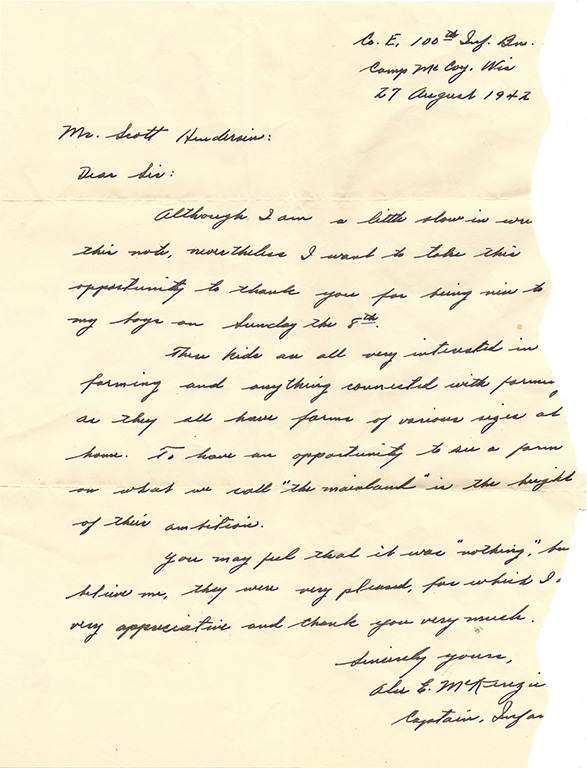 Co. E, 100th Inf. Bn.
Camp McCoy, Wis
27 August 1942
Mr. Scott Henderson:
Dear Sir:
Although I am a little slow in wri
this note, nevertheless I want to take this
opportunity to thank you for being nice to
my boys on Sunday the 8th.
These kids are all very interested in
farming and anything connected with farming
as they all have farms of various sizes at
home. To have an opportunity to see a farm
on what we call "the mainland" is the height
of their ambition.
You may feel that it was "nothing", bu
believe me, they were very pleased, for which I
very appreciative and thank you very much.
Sincerely yours,
Alex E. McKenzie
Captain, Infan